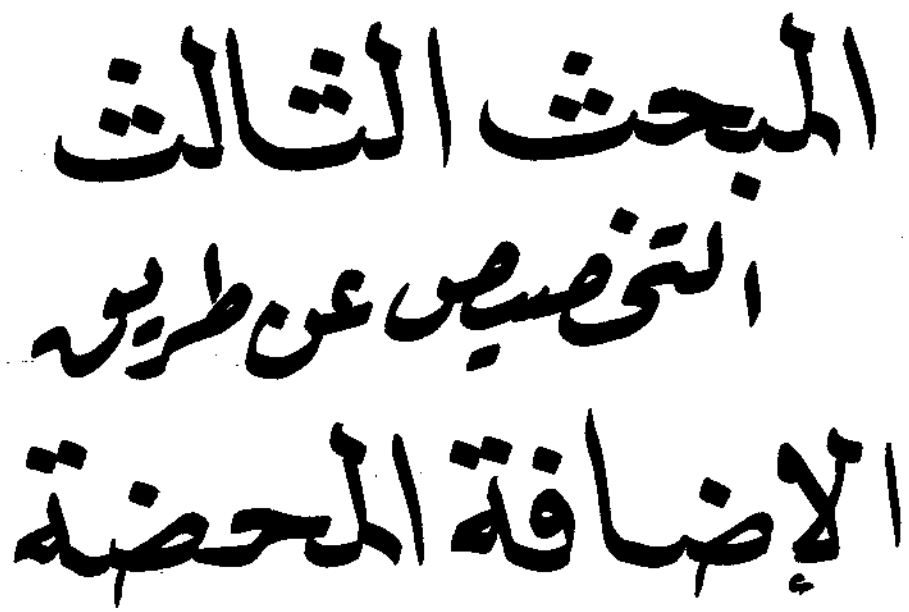 المبحث الثالث
التخصيص عن طريق
الإضافة المحضة